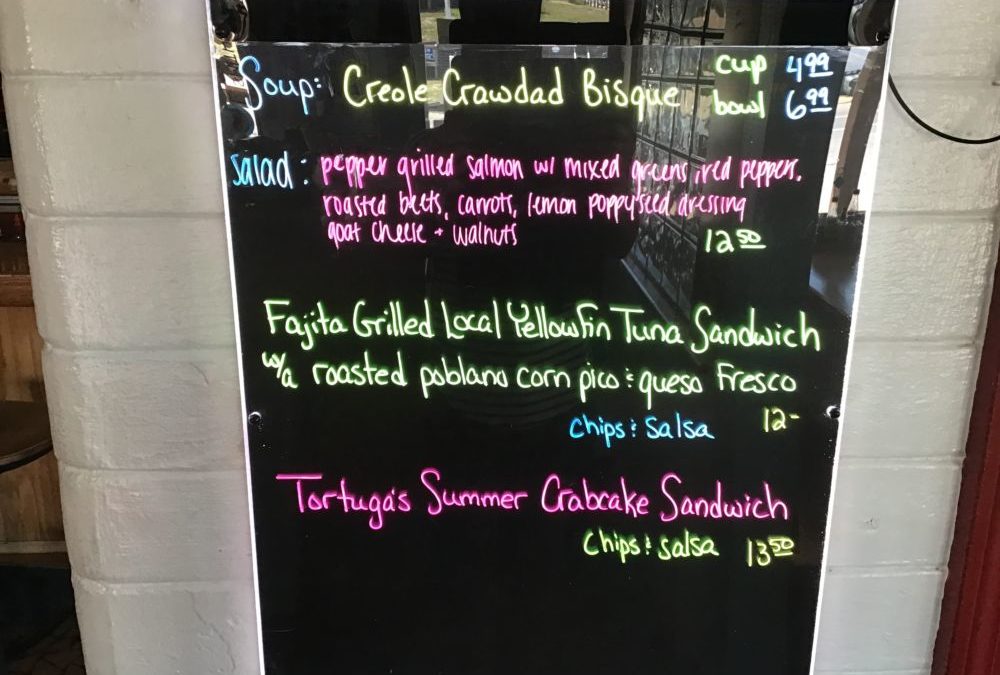 Soup: Creole Crawdad Bisque cup 4.99
bowl 6.99
salad: pepper grilled salmon w/ mixed greens, red peppers,
roasted beets, carrots, lemon poppyseed dressing
goat cheese + walnuts 12.50
Fajita Grilled Local Yellowfin Tuna Sandwich
w/a roasted poblano corn pico & queso Fresco
chips & salsa 12-
Tortuga's Summer Crabcake Sandwich
chips & salsa 13.50